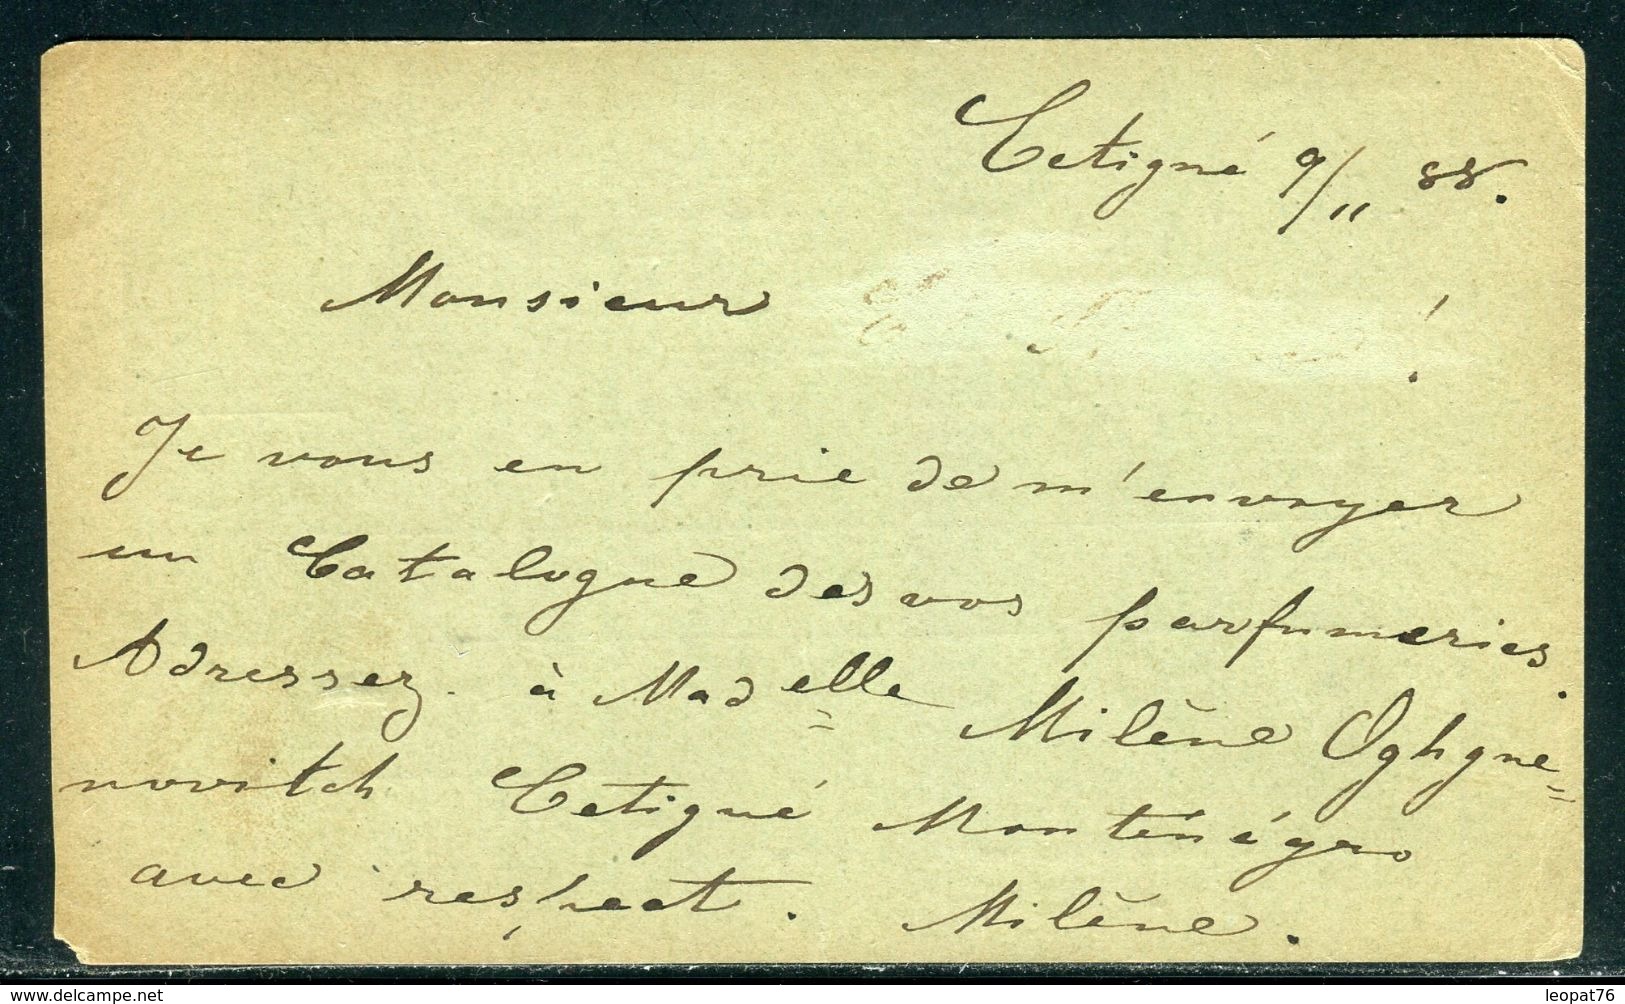 Cetigné 9/11 88.
Monsieur !
Je vous en prie de m'envoyer
un Catalogue des vos parfumeries.
Adressez à Madelle Milène Oghgne=
novitch Cetigné Monténégro
avec respect. Milène.
© www.delcampe.net
leopat76